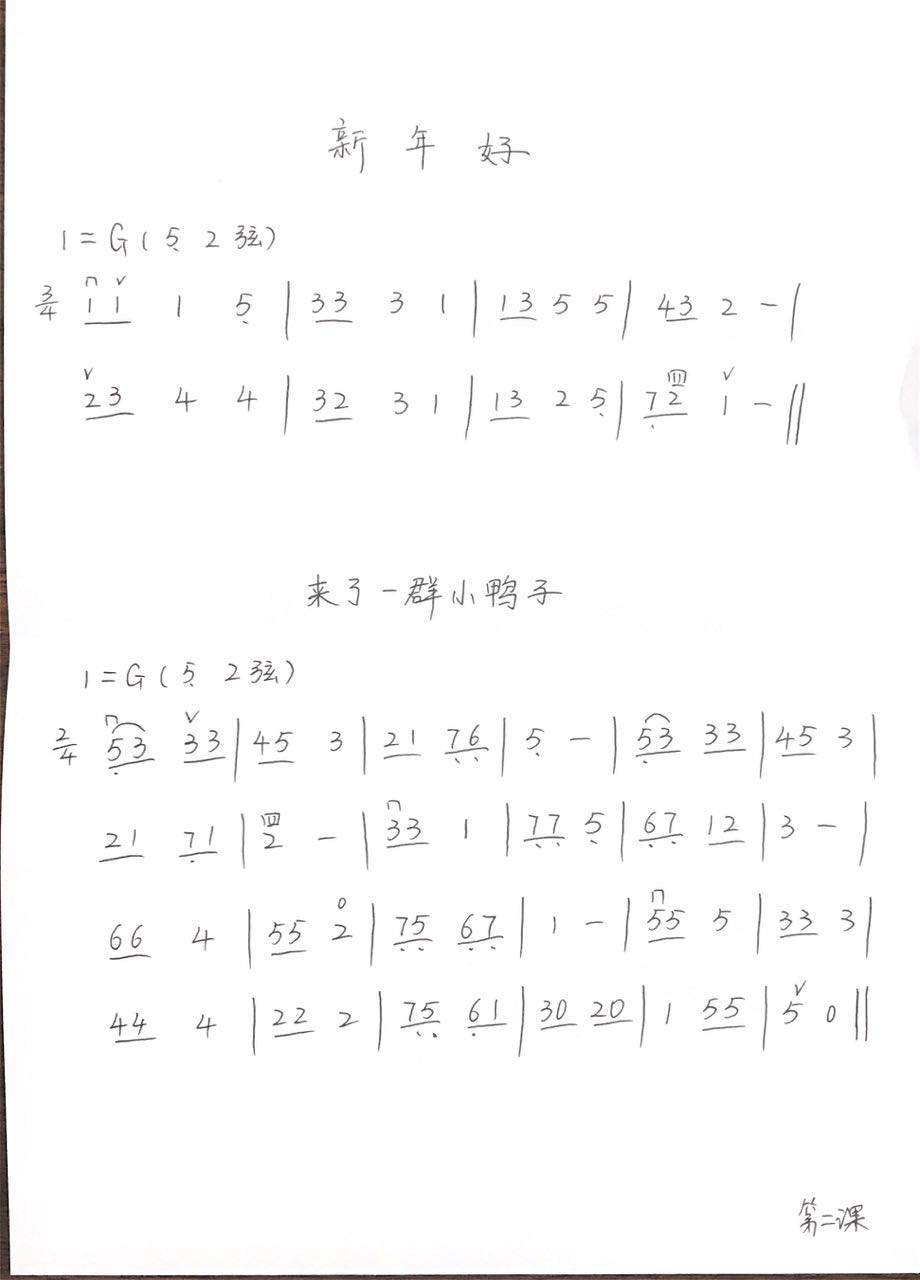 新年好
1=G(5̣ 2弦)
3/4 11 1 5̣ | 33 3 1 | 13 5 5 | 43 2 - |
23 4 4 | 32 3 1 | 13 2 5̣ | 7̣2 1 - ||
来了一群小鸭子
1=G(5̣ 2弦)
2/4 5̣3 33 | 45 3 | 21 7̣6̣ | 5̣ - | 5̣3 33 | 45 3 |
21 7̣1 | 四2 - | 33 1 | 7̣7̣ 5̣ | 6̣7̣ 12 | 3 - |
66 4 | 55 2 | 7̣5̣ 6̣7̣ | 1 - | 55 5 | 33 3 |
44 4 | 22 2 | 7̣5̣ 6̣1 | 30 20 | 1 55 | 5 0 ||
第二课